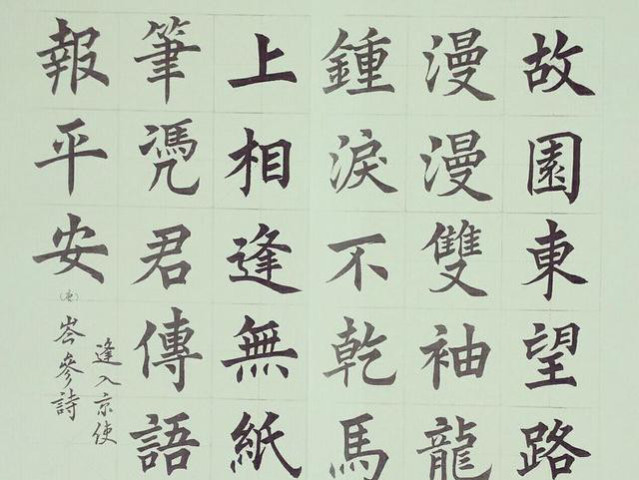 故園東望路
漫漫雙袖龍
鍾淚不乾馬
上相逢無紙
筆凴君傳語
報平安
逢入京使
岑參詩